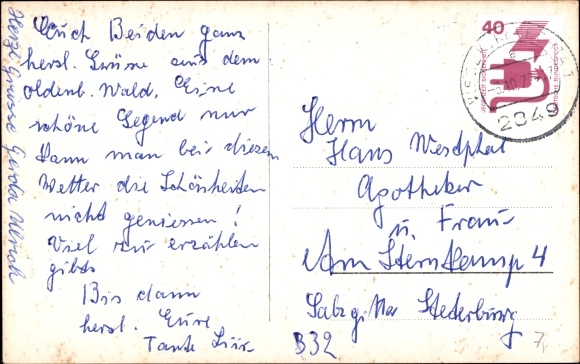 Euch Beiden ganz
herzl. Grüsse aus dem
oldenb. Wald. Eine
schöne Gegend nur
kann man bei diesem
Wetter die Schönheiten
nicht geniessen!
Viel zu erzählen
gibts
Bis dann
herzl. Eure
Tante
Herzl. Grüsse Gerda
40
DEUTSCHE BUNDESPOST
2849
Herrn
Hans Westphal
Apotheker
u. Frau
Am Sternkamp 4
Salzgitter Steterburg
B32
7